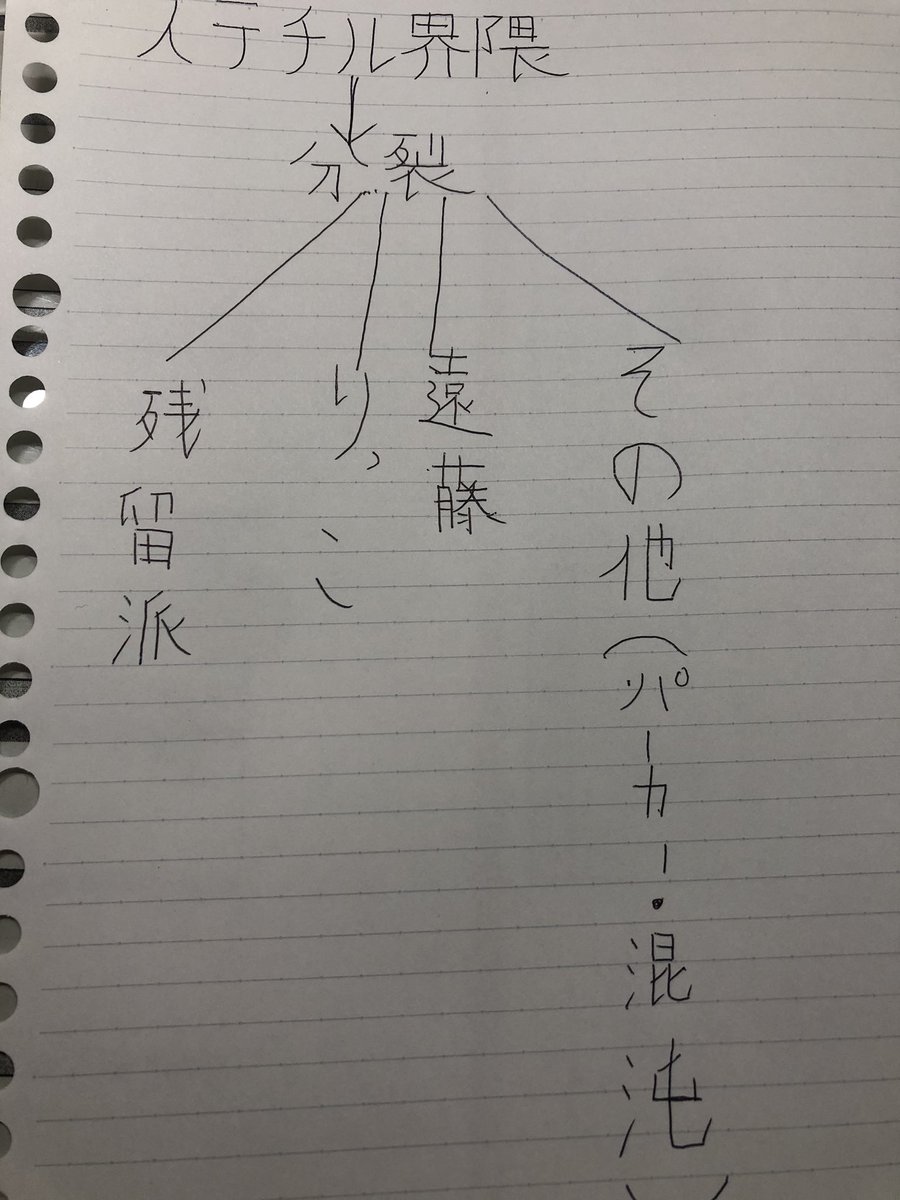 ステチル界隈
分裂
残留派
り、こ
遠藤
その他(パーカー・混沌)